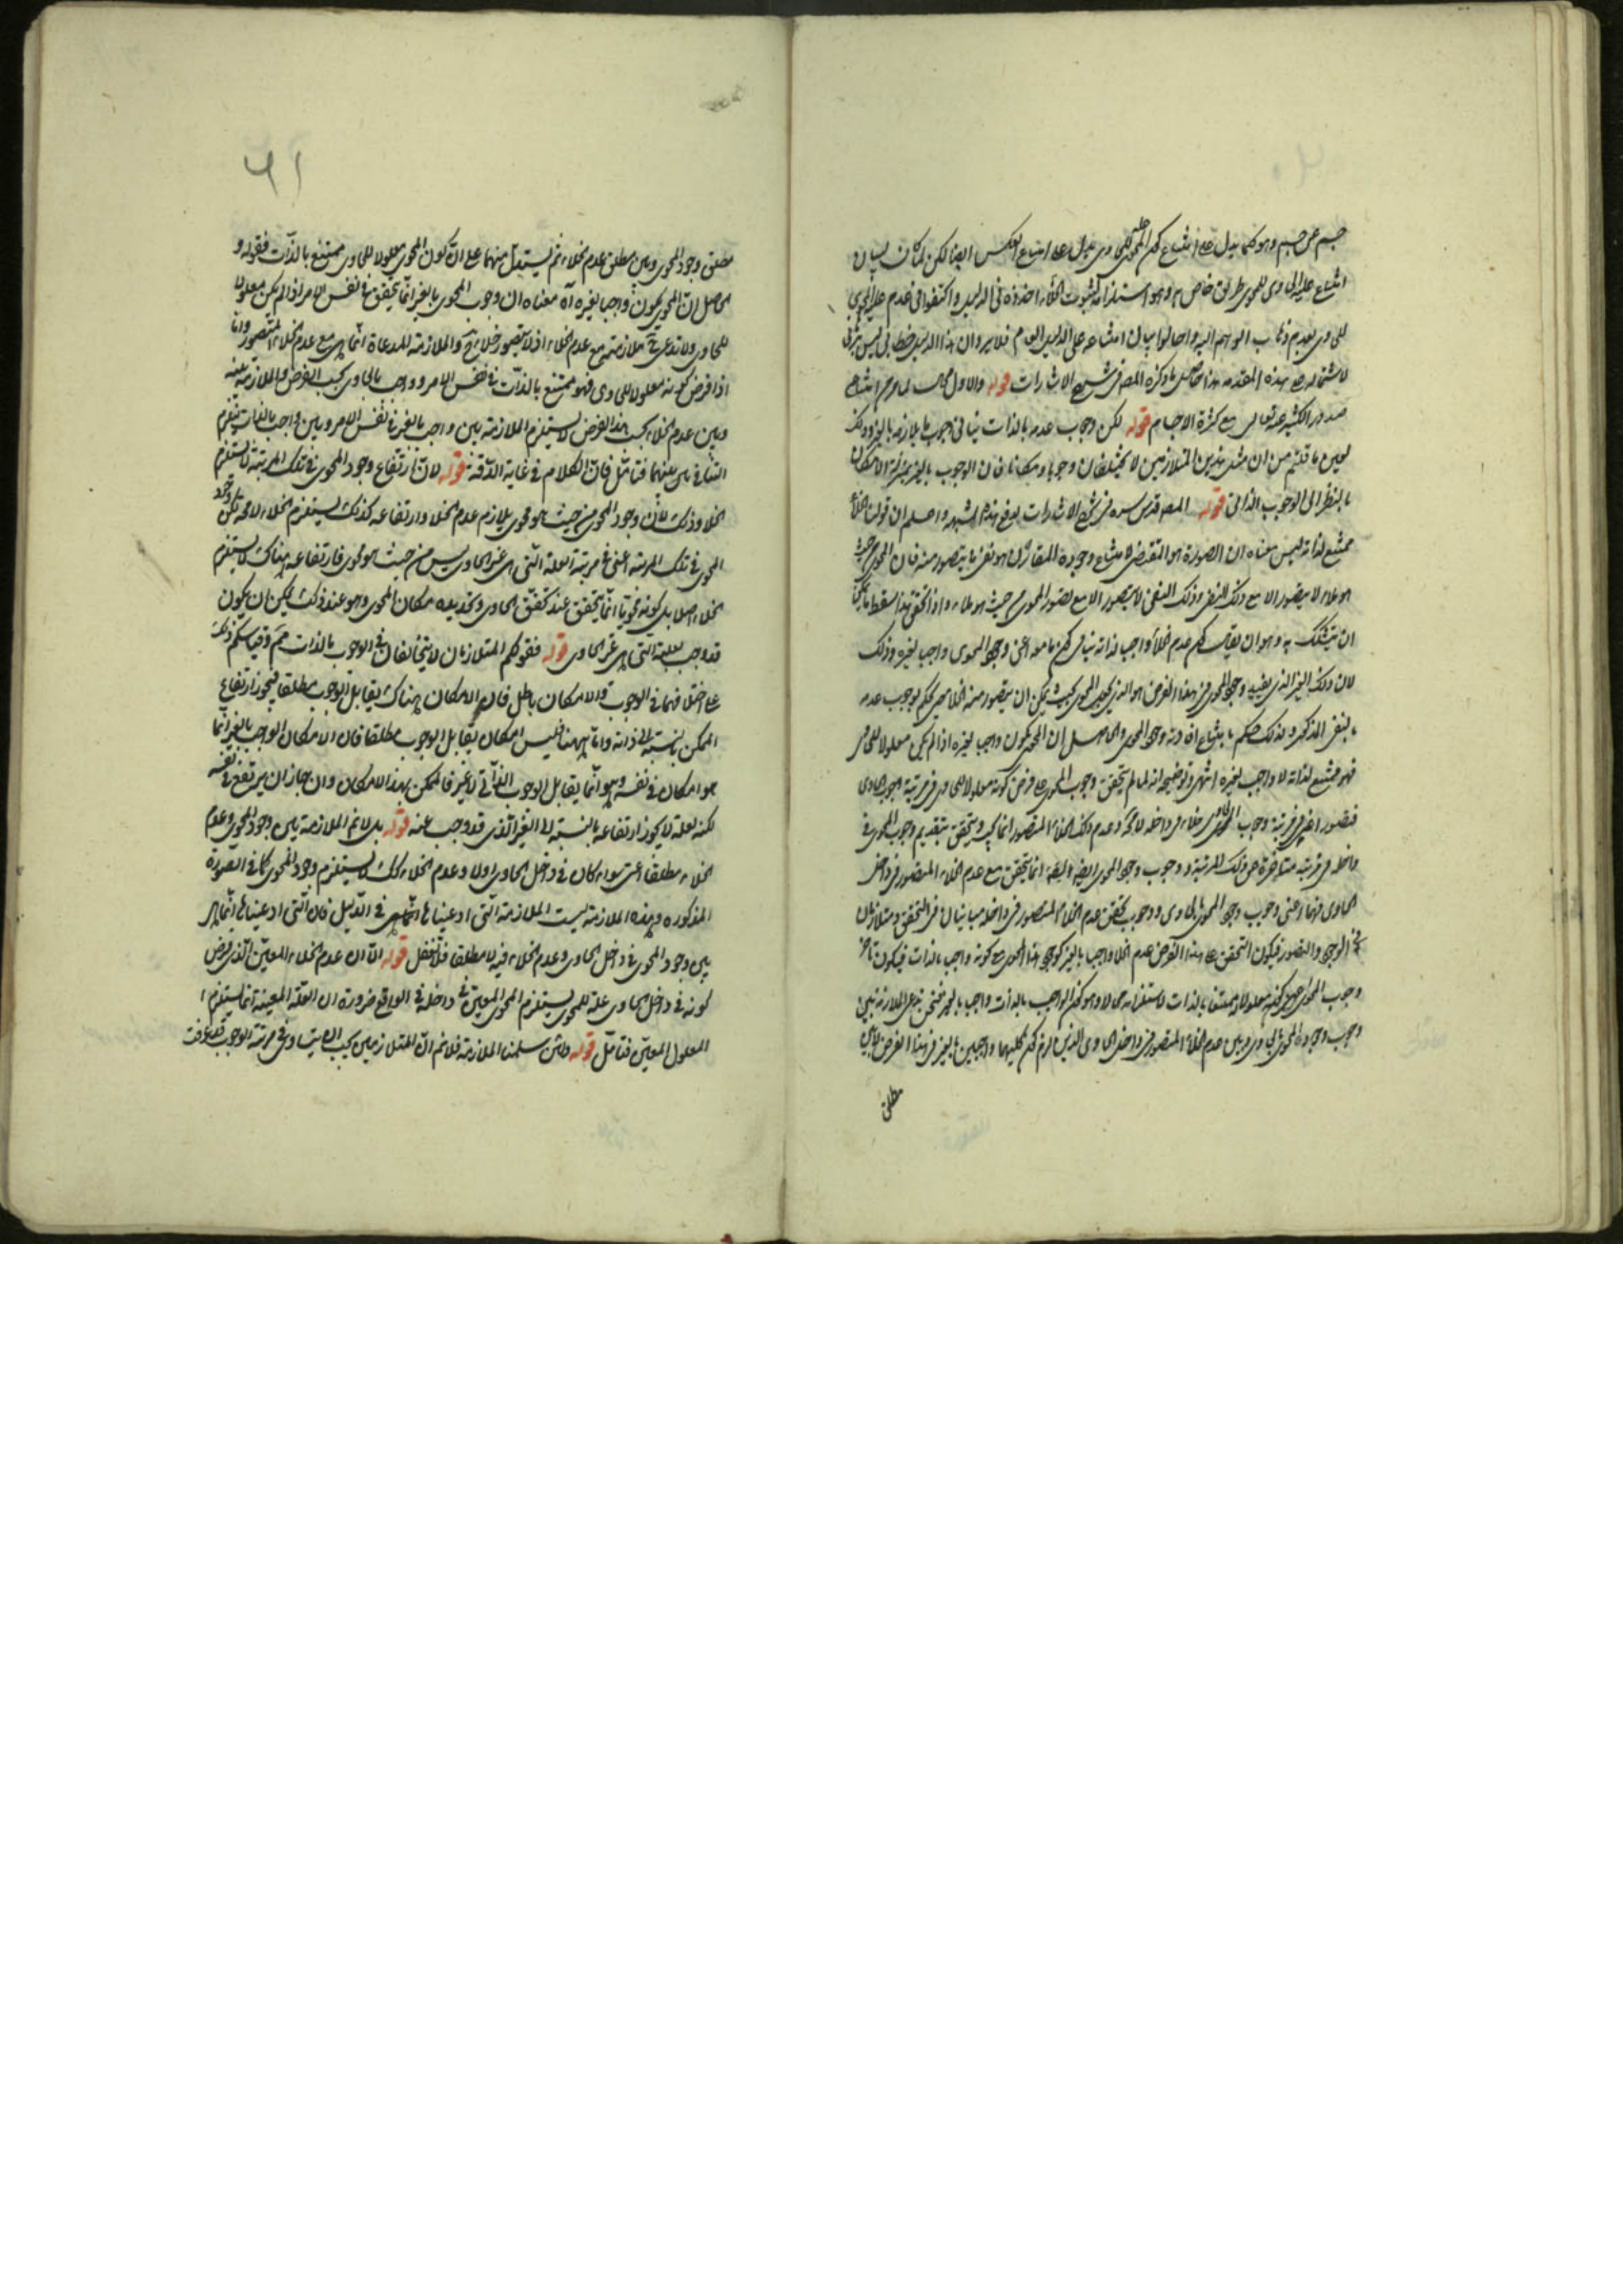 جسم عن جسم وهو كما يدل على امتناع كون المحوى علة للحاوى يدل على امتناع العكس ايضا لكن لما كان لبيان
امتناع علية الحاوى للمحوى طريق خاص وهو استلزامه لثبوت الخلاء اخذوه فى الدليل واكتفوا فى عدم علية المحوى
للحاوى بعدم ذهاب الوهم اليه واحالوا بيان امتناعه على الدليل العام فلا يرد ان هذا الدليل خطابى ليس ببرهانى
لاشتماله على هذه المقدمة هذا حاصل ما ذكره المص فى شرح الاشارات قوله والاول محال لما مر من امتناع
صدور الكثير عنه تعالى مع كثرة الاجسام قوله لكن وجوب عدمه بالذات ينافى وجوب ما يلازمه بالغير وذلك
لعين ما قلتم من ان مثل هذين المتلازمين لا يختلفان وجوبا وامكانا فان الوجوب بالغير بمنزلة الامكان
بالنظر الى الوجوب الذاتى قوله المص قدس سره فى شرح الاشارات لدفع هذه الشبهة واعلم ان قولنا الخلاء
ممتنع لذاته ليس معناه ان الصورة هو المقتضى لامتناع وجوده بل معناه ان هو نفى ما يتصور منه فان المحوى من حيث
هو ملاء لا يتصور الا مع ذلك النفى وذلك النفى لا يتصور الا مع تصور المحوى من حيث هو ملاء واذا تحقق هذا سقط ما يمكن
ان يتشكك به وهو ان يقال كون عدم الخلاء واجبا لذاته ينافى كون ما معه اعنى وجود المحوى واجبا لغيره وذلك
لان ذلك الغير الذى يفيد وجود المحوى فى هذا الفرض هو الذى يجعل المحوى بحيث يمكن ان يتصور منه الخلاء حتى يحكم بوجوب عدمه
بالنفى المذكور ولذلك حكم بامتناع افادته وجود المحوى والحاصل ان المحوى يكون واجبا لغيره اذا لم يكن معلولا للحاوى
فهو ممتنع لذاته لا واجب لغيره انتهى وتوضيحه انه لما لم يتحقق وجوب المحوى على فرض كونه معلولا للحاوى فى مرتبة وجوب الحاوى
فتصور اعنى فى مرتبة وجوب الحاوى خلاء فى داخله لا محالة وعدم ذلك الخلاء المتصور انما يجب ويتحقق بتقديم وجوب المحوى فى
داخله فى مرتبة متاخرة عن تلك المرتبة ووجوب وجود المحوى ايضا انما يتحقق مع عدم الخلاء المتصور فى داخل
الحاوى فهما اعنى وجوب وجود المحوى بالحاوى ووجوب تحقق عدم الخلاء المتصور فى داخله متباينان فى التحقق ومتلازمان
فى الوجود والتصور فيكون التحقق على هذا الفرض عدم الخلاء واجب بالغير كوجود هذا المحوى مع كونه واجبا بالذات فيكون تاخر
وجوب المحوى لكونه معلولا ممتنعا بالذات لاستلزامه محالا وهو كون الواجب بالذات واجبا بالغير فنحن ندعى الملازمة بين
وجوب وجود المحوى بالحاوى وبين عدم الخلاء المتصور فى داخل الحاوى الذين لزم كون كليهما واجبين بالغير فى هذا الفرض لا بين
مطلق
٥١
مطلق وجود المحوى وبين مطلق عدم الخلاء ثم نستدل منهما على ان كون المحوى معلولا للحاوى ممتنع بالذات فقوله و
الحاصل ان المحوى يكون واجبا لغيره اه معناه ان وجوب المحوى بالغير انما يتحقق فى نفس الامر اذا لم يكن معلولا
للحاوى ولا ندعى ح ملازمته مع عدم الخلاء اذ لا يتصور خلاء ح والملازمة المدعاة انما هى مع عدم الخلاء المتصور واما
اذا فرض كونه معلولا للحاوى فهو ممتنع بالذات فى نفس الامر وواجب بالحاوى بحسب الفرض والملازمة بينه
وبين عدم الخلاء بحسب هذا الفرض لا يستلزم الملازمة بين واجب بالغير فى نفس الامر وبين واجب بالذات ليلزم
التنافى بينهما فتامل فان الكلام فى غاية الدقة قوله لان ارتفاع وجود المحوى فى تلك المرتبة لا يستلزم
الخلاء وذلك لان وجود المحوى من حيث هو محوى يلازم عدم الخلاء وارتفاعه كذلك يستلزم الخلاء لا محالة لكن وجود
المحوى فى تلك المرتبة اعنى فى مرتبة العلة التى هى غير الحاوى ليس من حيث هو محوى فارتفاعه هناك لا يستلزم
الخلاء اصلا بل كونه محويا انما يتحقق عند تحقق الحاوى وتحديده مكان المحوى وهو عند ذلك يمكن ان يكون
قد وجب بعلته التى هى غير الحاوى قوله فقولكم المتلازمان لا يتخالفان فى الوجوب بالذات مم وقياسكم ذلك
على اختلافهما فى الوجوب والامكان باطل فان الامكان هناك يقابل الوجوب مطلقا فيجوز ارتفاع
الممكن بالنسبة الى ذاته واما ههنا فليس امكان يقابل الوجوب مطلقا فان الامكان الواجب بالغير انما
هو امكان فى نفسه وهو انما يقابل الوجوب الذاتى لا غير فالممكن بهذا الامكان وان جاز ان يرتفع فى نفسه
لكنه لعلة لا يجوز ارتفاعه بالنسبة الى الغير الذى قد وجب عنه قوله بل لا نم الملازمة بين وجود المحوى وعدم
الخلاء مطلقا اعنى سواء كان فى داخل الحاوى اولا وعدم الخلاء كك لا يستلزم وجود المحوى كما فى الصورة
المذكورة وهذه الملازمة ليست الملازمة التى ادعيناها انما هى فى الدليل فان التى ادعيناها انما هى
بين وجود المحوى فى داخل الحاوى وعدم الخلاء فيه لا مطلقا فلا تغفل قوله الا ان عدم الخلاء المعين الذى فرض
كونه فى داخل الحاوى علة للمحوى يستلزم المحوى المعين فى داخله فى الواقع ضرورة ان العلة المعينة انما يستلزم ا
المعلول المعين فتامل قوله ولئن سلمنا الملازمة فلا نم ان المتلازمين يجب ان يتساوى فى مرتبة الوجوب فقد عرفت